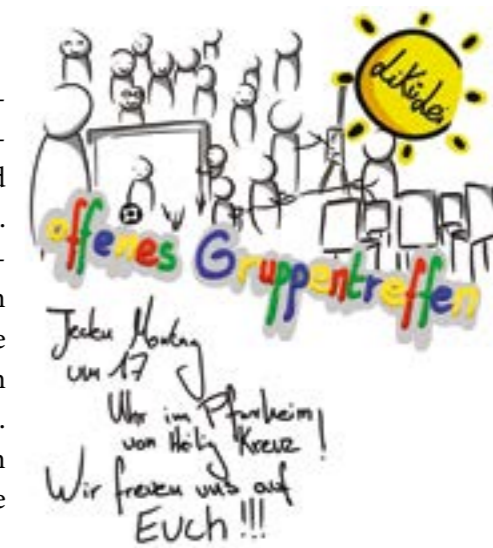 diKidei
offenes Gruppentreffen
Jeden Montag
um 17
Uhr im Pfarrheim
von Heilig Kreuz!
Wir freuen uns auf
EUCH!!!